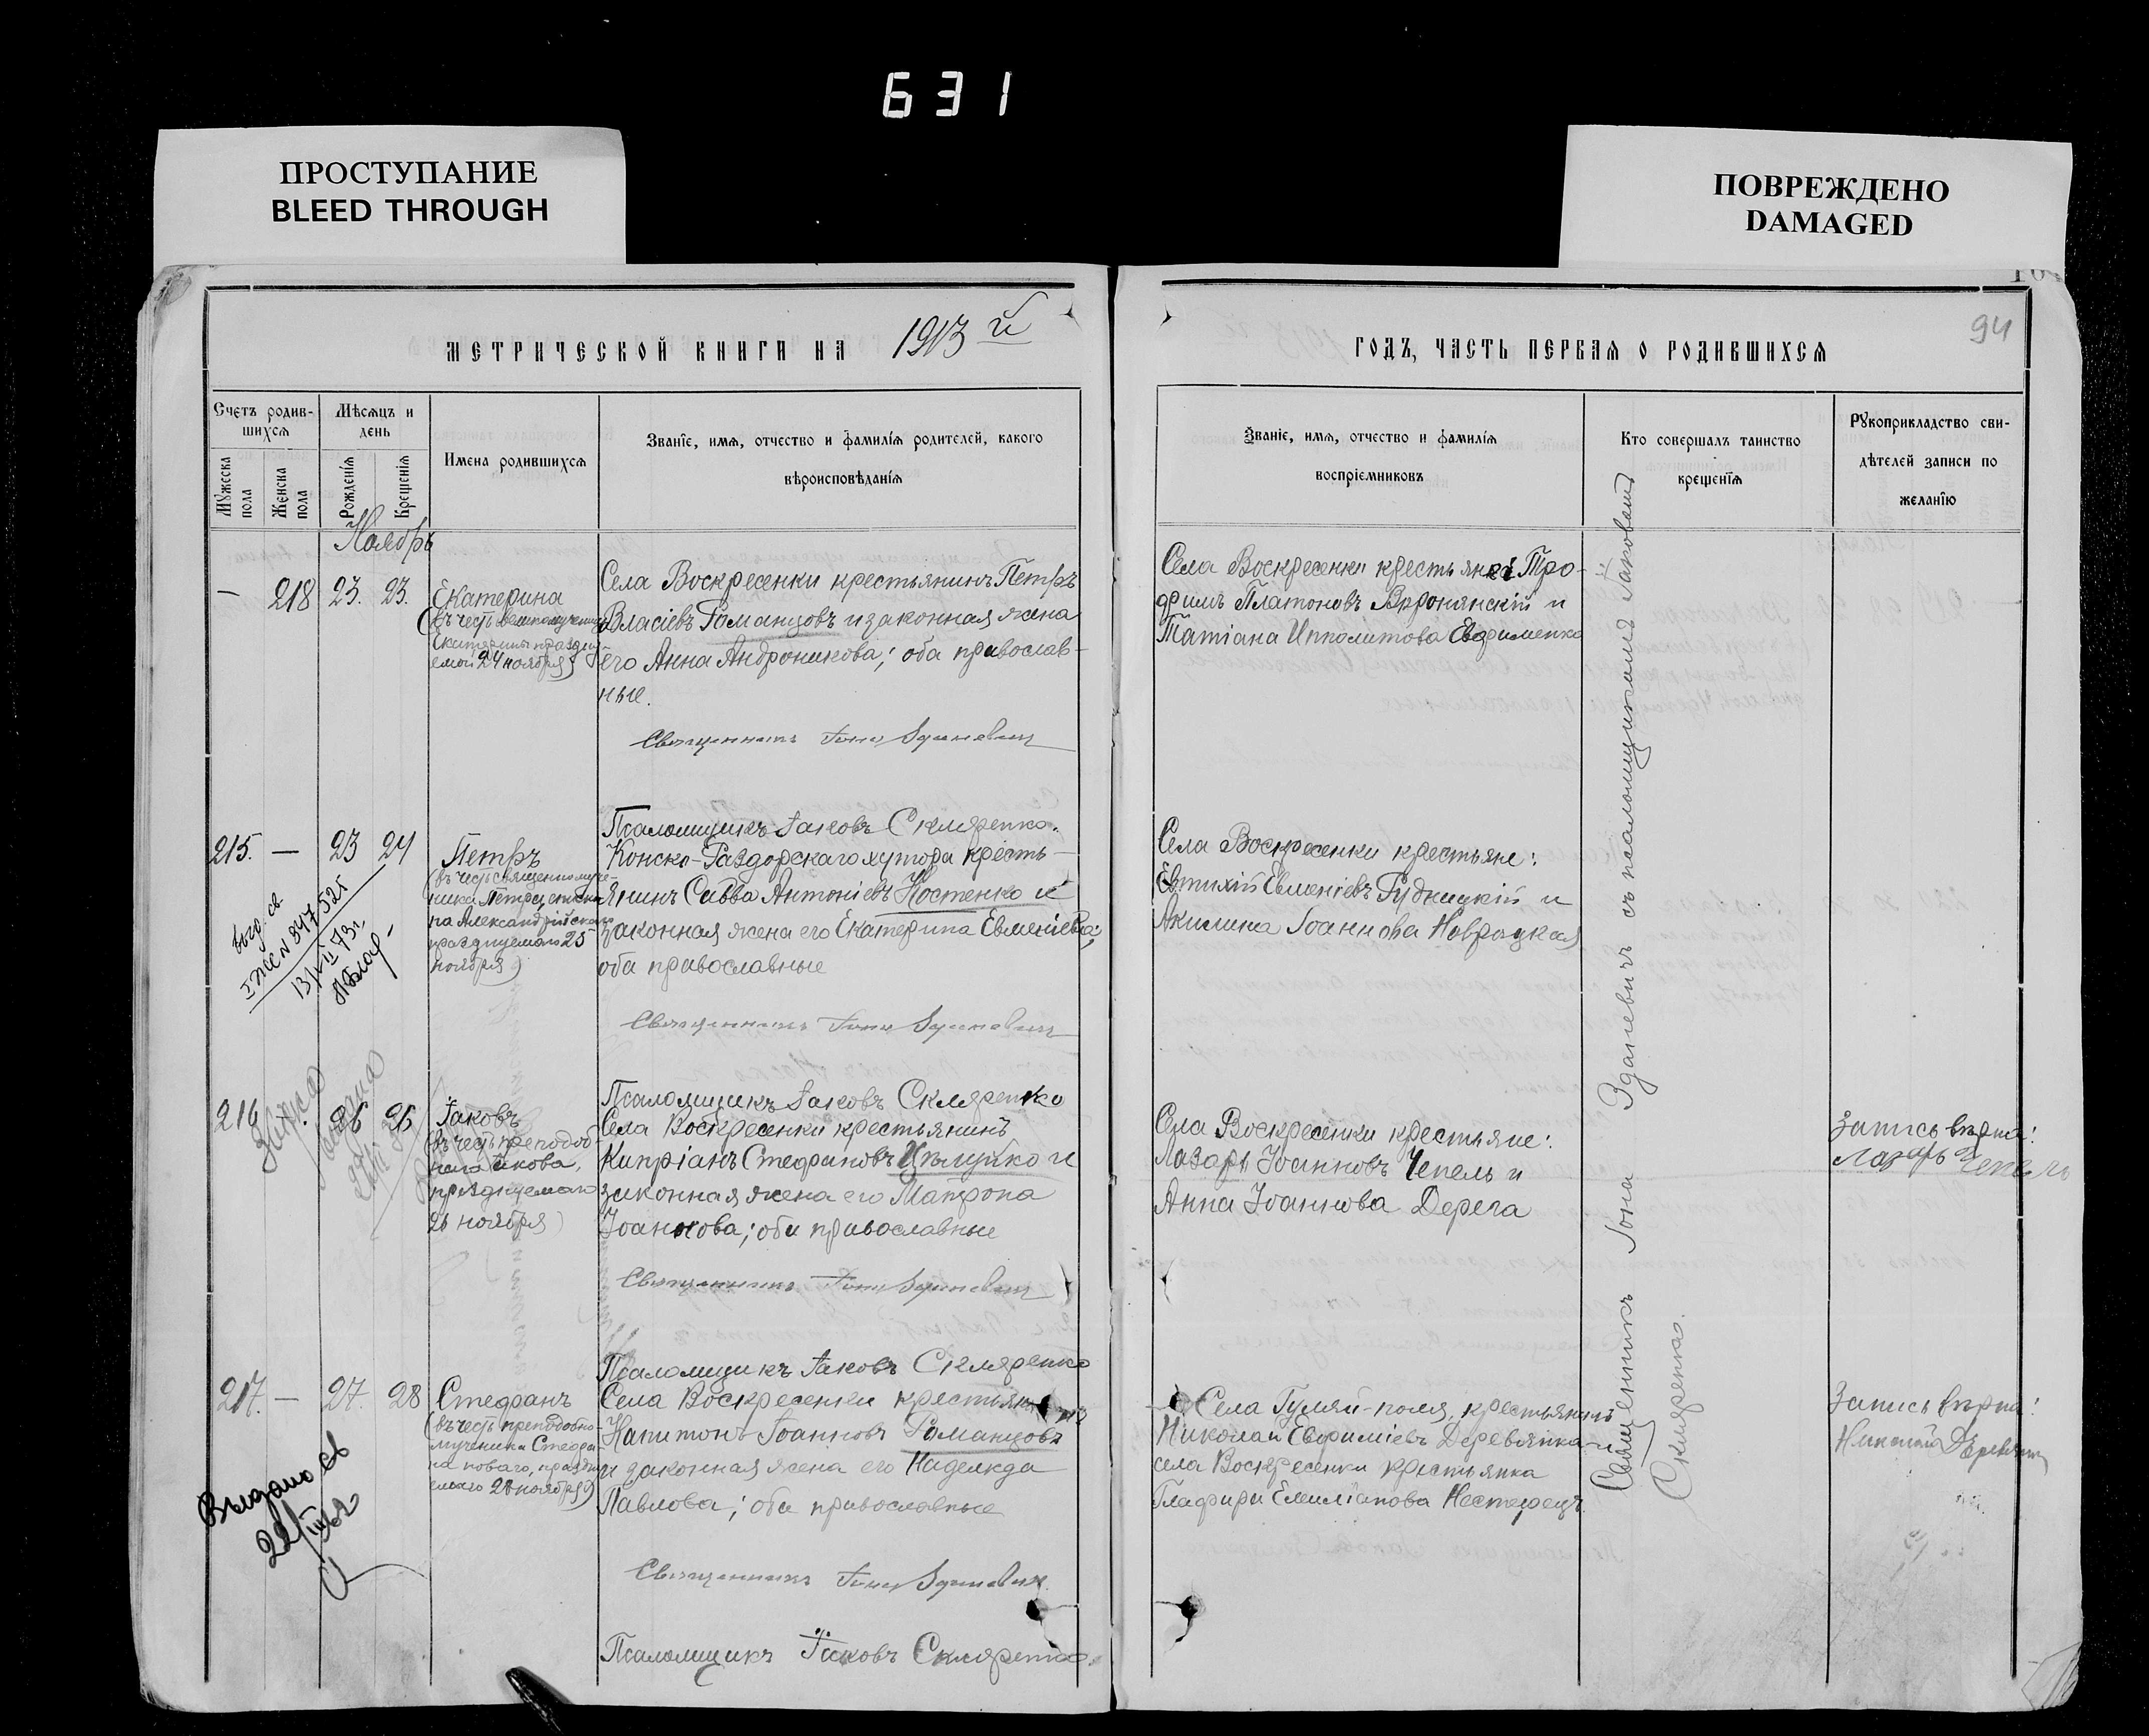 631
ПРОСТУПАНИЕ
BLEED THROUGH
ПОВРЕЖДЕНО
DAMAGED
МЕТРИЧЕСКОЙ КНИГИ НА 1913 й
ГОДЪ, ЧАСТЬ ПЕРВАЯ О РОДИВШИХСЯ
94
Счетъ родив-
шихся
Мужеска
пола
Женска
пола
Мѣсяцъ и
день
Рожденія
Крещенія
Имена родившихся
Званіе, имя, отчество и фамилія родителей, какого
вѣроисповѣданія
Званіе, имя, отчество и фамилія
воспріемниковъ
Кто совершалъ таинство
крещенія
Рукоприкладство сви-
дѣтелей записи по
желанію
Ноябрь
— 218 23. 23.
Екатерина
(въ честь великомученицы
Екатерины праздну-
емой 24 ноября)
Села Воскресенки крестьянинъ Петръ
Власіевъ Романцовъ и законная жена
его Анна Андроникова; оба православ-
ные.
Священникъ Іона Зданевичъ
Псаломщикъ Іаковъ Скляренко.
Села Воскресенки крестьяне Тро-
фимъ Платоновъ Воронянскій и
Татіана Ипполитова Евфименко
215. — 23 24
Петръ
(въ честь священномуче-
ника Петра, еписко-
па Александрійскаго
празднуемаго 25
ноября)
Конско-Раздорскаго хутора кресть-
янинъ Савва Антоніевъ Костенко и
законная жена его Екатерина Евменіева;
оба православные
Священникъ Іона Зданевичъ
Псаломщикъ Іаковъ Скляренко
Села Воскресенки крестьяне:
Евтихій Евменіевъ Рудницкій и
Акилина Іоаннова Навроцкая
выд. св
I ЖС № 847525
13/VII 73г.
216 — 26 26
Іаковъ
(въ честь преподоб-
наго Іакова,
празднуемаго
26 ноября)
Села Воскресенки крестьянинъ
Кипріанъ Стефановъ Цѣлуйко и
законная жена его Матрона
Іоаннова; оба православные
Священникъ Іона Зданевичъ
Псаломщикъ Іаковъ Скляренко
Села Воскресенки крестьяне:
Лазарь Іоанновъ Чепель и
Анна Іоаннова Дерега
Запись вѣрна:
Лазарь Чепель
217. — 27. 28
Стефанъ
(въ честь преподобно-
мученика Стефа-
на новаго, праздну-
емаго 28 ноября)
Села Воскресенки крестьянинъ
Капитонъ Іоанновъ Романцовъ
и законная жена его Надежда
Павлова; оба православные
Священникъ Іона Зданевичъ.
Псаломщикъ Іаковъ Скляренко.
Села Гуляй-поля, крестьянинъ
Николай Евфиміевъ Деревянка и
села Воскресенки крестьянка
Глафира Емиліанова Нестерецъ.
Запись вѣрна:
Николай Деревянка
Выдано св
22/III 62
Священникъ Іона Зданевичъ съ псаломщикомъ Іаковомъ
Скляренко.